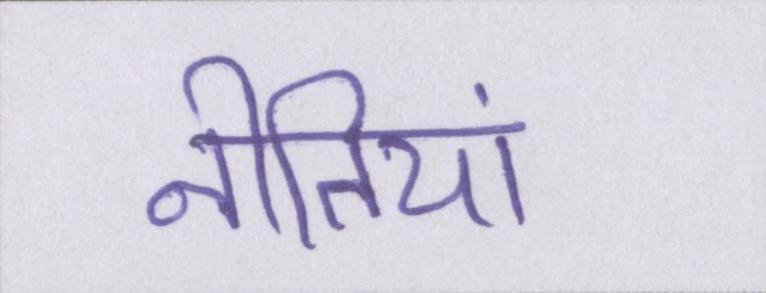 नीतियां